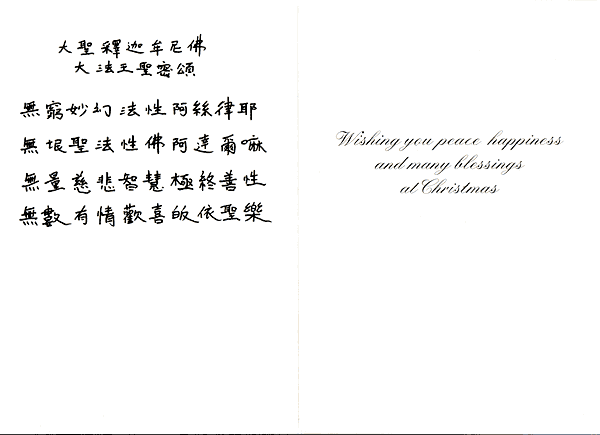 大聖釋迦牟尼佛
大法王聖密頌
無窮妙幻法性阿絲律耶
無垠聖法性佛阿達爾嘛
無量慈悲智慧極終善性
無數有情歡喜皈依聖樂
Wishing you peace happiness
and many blessings
at Christmas